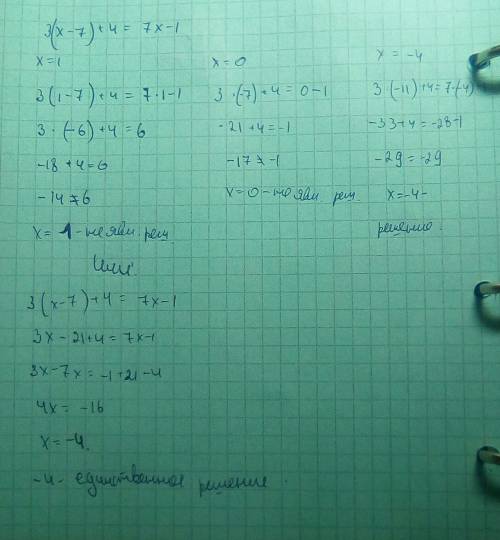 3(x-7)+4 = 7x-1
x=1
3(1-7)+4 = 7·1-1
3·(-6)+4=6
-18+4=6
-14≠6
x=1-не явл. реш.
x=0
3·(-7)+4=0-1
-21+4=-1
-17≠-1
x=0-не явл. реш.
x=-4
3·(-11)+4=7·(-4)
-33+4=-28-1
-29=-29
x=-4-
решение.
Или:
3(x-7)+4= 7x-1
3x-21+4=7x-1
3x-7x=-1+21-4
4x= -16
x=-4.
-4- единственное решение.